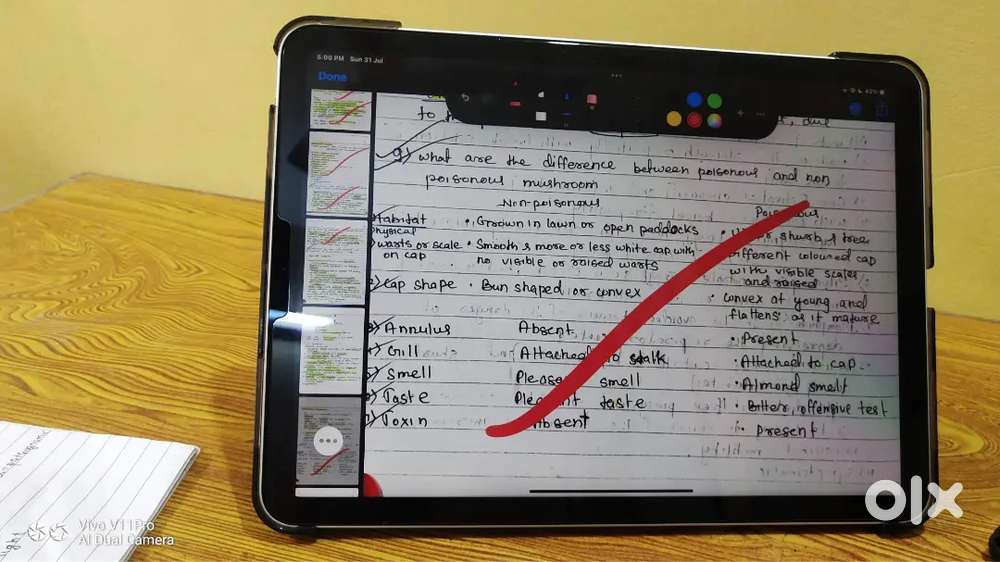 5:00 PM Sun 31 Jul
Done
43%
due
9) what are the difference between poisonous and non
poisonous mushroom
Non-poisonous
Habitat • Grown in lawn or open paddocks • shurb & tree
physical
warts or scale • Smooth & more or less white cap with different coloured cap
on cap no visible or raised warts with visible scales
and raised
cap shape • Bun shaped or convex • convex at young and
flattens as it mature
Annulus Absent • Present
Gill Attached to stalk • Attached to cap
Smell smell • Almond smell
Taste taste • Bitter, offensive test
Toxin Absent • present
olx
Vivo V11Pro
AI Dual Camera